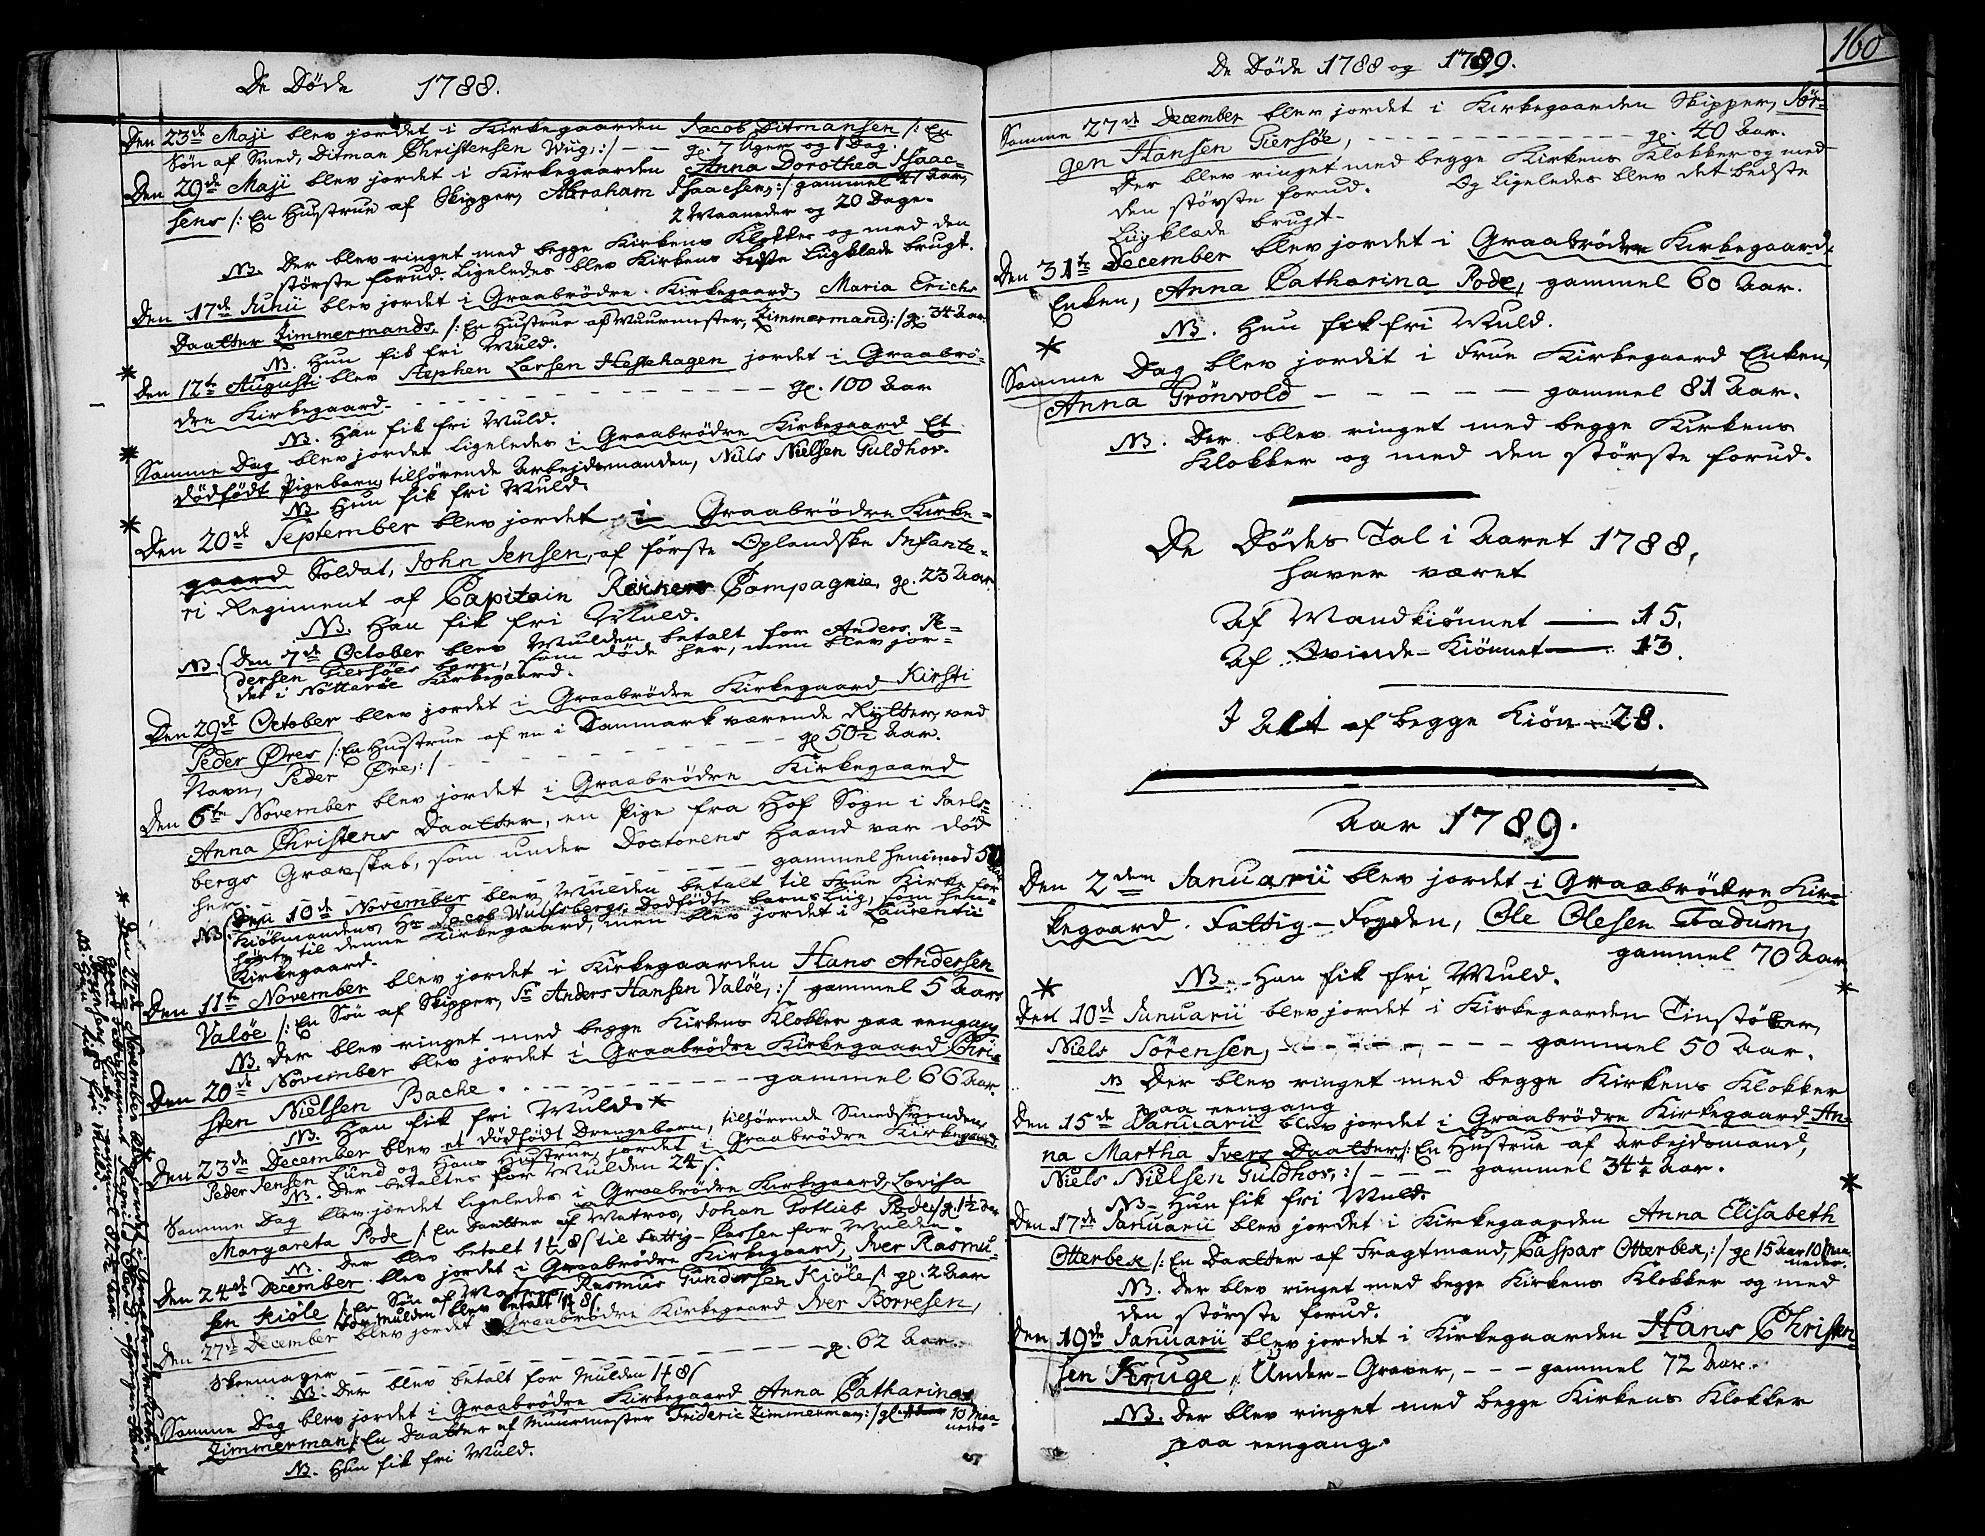 De Døde 1788.
Den 23de Maji blev jordet i Kirkegaarden Jacob Ditmansen /: En
Søn af Smed, Ditman Christensen Wug, :/ — — gl. 7 Uger og 1 Dag.
Den 29de Maji blev jordet i Kirkegaarden Anna Dorothea Isaac-
sens /: En Hustrue af Skipper, Abraham Isaacsen, :/ gammel 41 Aar,
2 Maaneder og 20 Dage.
NB. Der blev ringet med begge Kirkens Klokker og med den
største forud. Ligeledes blev Kirkens bedste Liigklæde brugt.
Den 17de Junii blev jordet i Graabrødre Kirkegaard Maria Erichs
Daatter Zimmermands, /: En Hustrue af Muurmester, Zimmermand, :/ gl. 34 Aar.
NB. Hun fik fri Muld.
Den 12te Augusti blev Stephen Larsen Hestehagen jordet i Graabrø-
dre Kirkegaard. — — — gl. 100 Aar
NB. Han fik fri Muld.
Samme Dag blev jordet ligeledes i Graabrødre Kirkegaard Et
dødfødt Pigebarn, tilhørende Arbejdsmanden, Niels Nielsen Guldhov.
NB. Hun fik fri Muld.
Den 20de September blev jordet i Graabrødre Kirke-
gaard Soldat, John Jensen, af første Oplandske Infante-
ri Regiment af Capitain Compagnie, gl. 23 Aar
NB. Han fik fri Muld.
NB. Den 7de October blev Mulden betalt for Anders Pe-
dersen Giersøes barn, som døde her, men blev jor-
det i Nøtterøe Kirkegaard.
Den 29de October blev jordet i Graabrødre Kirkegaard Kirsti
Peder Øres /: En Hustrue af en i Danmark værende Rytter, ved
Navn, Peder Øre, :/ — — — gl. 50½ Aar.
Den 6te November blev jordet i Graabrødre Kirkegaard
Anna Christens Daatter, en Pige fra Hof Sogn i Jarls-
bergs Grævskab, som under Doctorens Haand var død
her. — — — gammel henimod
NB. Den 10de November blev Mulden betalt til Frue Kirke for
Kiøbmandens, Hr Jacob Wulfsbergs Dødfødte barns Liig, som hen-
hørte til denne Kirkegaard, men blev jordet i Laurentii
Kirkegaard.
Den 11te November blev jordet i Kirkegaarden Hans Andersen
Valøe /: En Søn af Skipper, Sr Anders Hansen Valøe, :/ gammel 5 Aar
NB. Der blev ringet med begge Kirkens Klokker paa eengang
Den 20de November blev jordet i Graabrødre Kirkegaard Chri-
sten Nielsen Bache. — — — gammel 66 Aar.
NB. Han fik fri Muld.
Den 23de December blev et dødfødt Drengebarn, tilhørende Smedsvenden
Peder Jensen Lund og Hans Hustrue, jordet i Graabrødre Kirkegaard.
NB. Der betaltes for Mulden 24 s.
Samme Dag blev jordet ligeledes i Graabrødre Kirkegaard, Lovisa
Margareta Pode /: En Daatter af Matros, Johan Gotlieb Pode/ gl. 1½ Aar
NB. der blev betalt 1 8 s til Fattig-Cassen for Mulden.
Den 24de December blev jordet i Graabrødre Kirkegaard, Iver Rasmu-
sen Kiøle /: En Søn af Rasmus Gundersen Kiøle /: gl. 2 Aar
for Mulden blev betalt 8 s.
Den 27de December blev jordet i Graabrødre Kirkegaard Iver Borresen,
Skoemager — — — gl. 62 Aar.
NB. Der blev betalt for Mulden 1 8 s
Samme Dag blev jordet i Graabrødre Kirkegaard Anna Catharina
Zimmerman /: En Daatter af Muurmester Frideric Zimmerman :/ gl. 10 Maa-
neder
NB. Hun fik fri Muld.
De Døde 1788 og 1789.
160
Samme 27de December blev jordet i Kirkegaarden Skipper, Jør-
gen Hansen Giersøe, — — — gl. 40 Aar.
Der blev ringet med begge Kirkens Klokker og med
den største forud. Og ligeledes blev det bedste
Liigklæde brugt.
Den 31te December blev jordet i Graabrødre Kirkegaard
Enken, Anna Catharina Pode, gammel 60 Aar.
NB. Hun fik fri Muld.
Samme Dag blev jordet i Frue Kirkegaard Enken,
Anna Grønvold — — — gammel 81 Aar.
NB. Der blev ringet med begge Kirkens
Klokker og med den største forud.
De Dødes Tal i Aaret 1788,
haver været
Af Mandkiønnet — 15.
Af Qvinde-Kiønnet — 13.
I Alt af begge Kiøn — 28.
Aar 1789.
Den 2den Januarii blev jordet i Graabrødre Kir-
kegaard Fattig-Fogden, Ole Olesen Fadum,
gammel 70 Aar
NB. Han fik fri Muld.
Den 10de Januarii blev jordet i Kirkegaarden Tinstøber,
Niels Sørensen, — — — gammel 50 Aar.
NB Der blev ringet med begge Kirkens Klokker
paa eengang
Den 15de Januarii blev jordet i Graabrødre Kirkegaard An-
na Martha Ivers Daatter /: En Hustrue af Arbejdsmand,
Niels Nielsen Guldhov, :/ — — — gammel 34½ Aar.
NB. Hun fik fri Muld.
Den 17de Januarii blev jordet i Kirkegaarden Anna Elisabeth
Otterbek /: En Daatter af Fragtmand, Caspar Otterbek, :/ gl. 15 Aar 10 Maa-
neder.
NB. Der blev ringet med begge Kirkens Klokker og med
den største forud.
Den 19de Januarii blev jordet i Kirkegaarden Hans Christen-
sen Kruge, Under-Graver, — — — gammel 72 Aar.
NB. Der blev ringet med begge Kirkens Klokker
paa eengang.